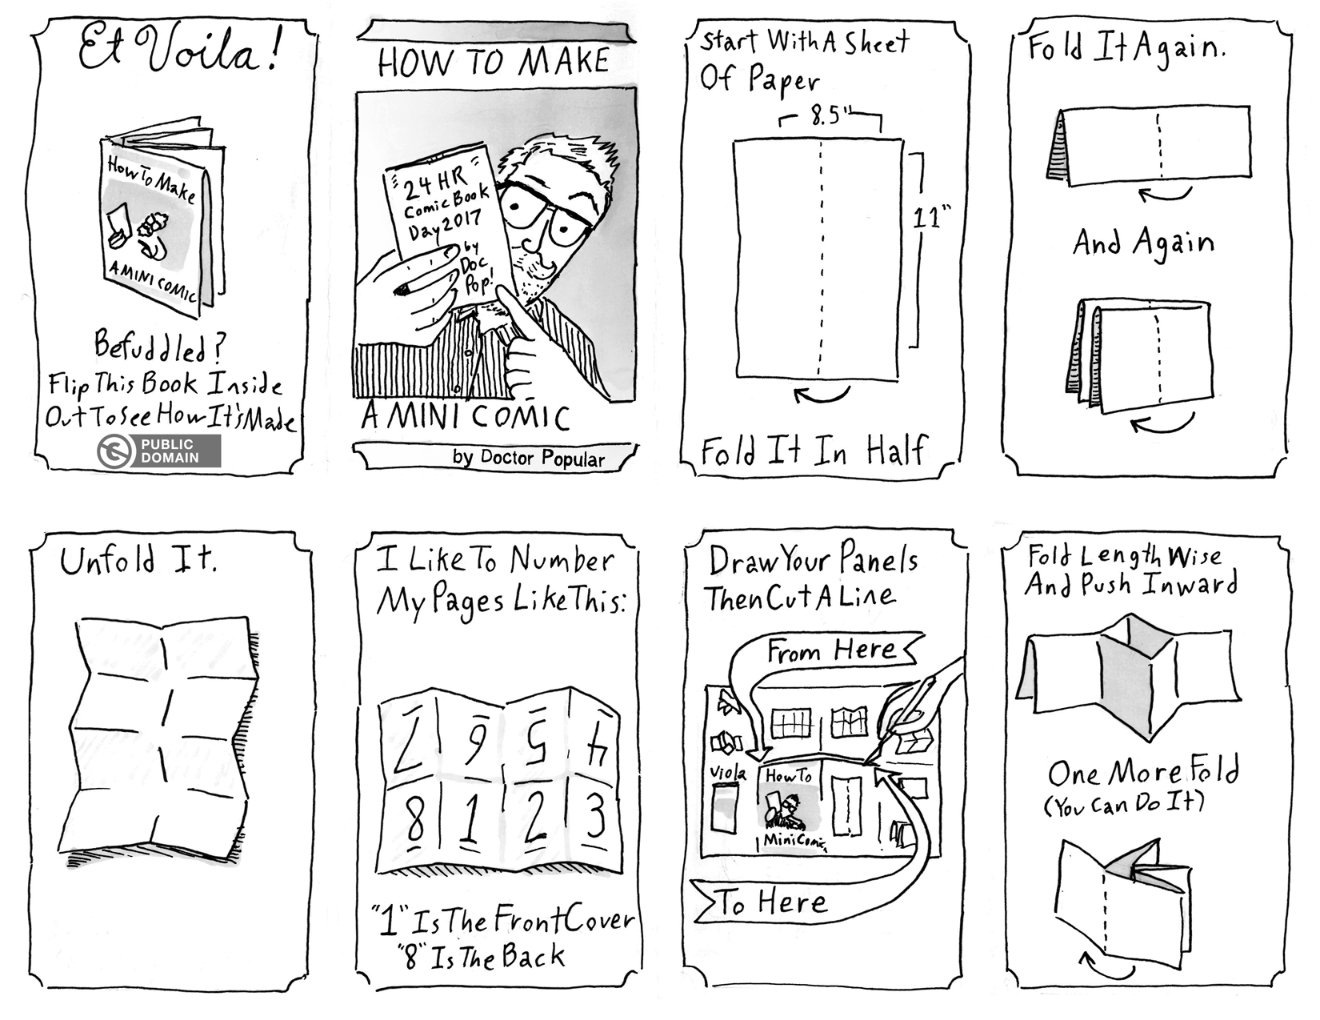 Et Voila!
How To Make
A MINI COMIC
Befuddled?
Flip This Book Inside
Out To See How It's Made
PUBLIC
DOMAIN
HOW TO MAKE
24 HR
Comic Book
Day 2017
by
Doc
Pop!
A MINI COMIC
by Doctor Popular
Start With A Sheet
Of Paper
8.5"
11"
Fold It In Half
Fold It Again.
And Again
Unfold It.
I Like To Number
My Pages Like This:
7 6 5 4
8 1 2 3
"1" Is The Front Cover
"8" Is The Back
Draw Your Panels
Then Cut A Line
From Here
Viola
How To
Mini Comic
To Here
Fold Length Wise
And Push Inward
One More Fold
(You Can Do It)